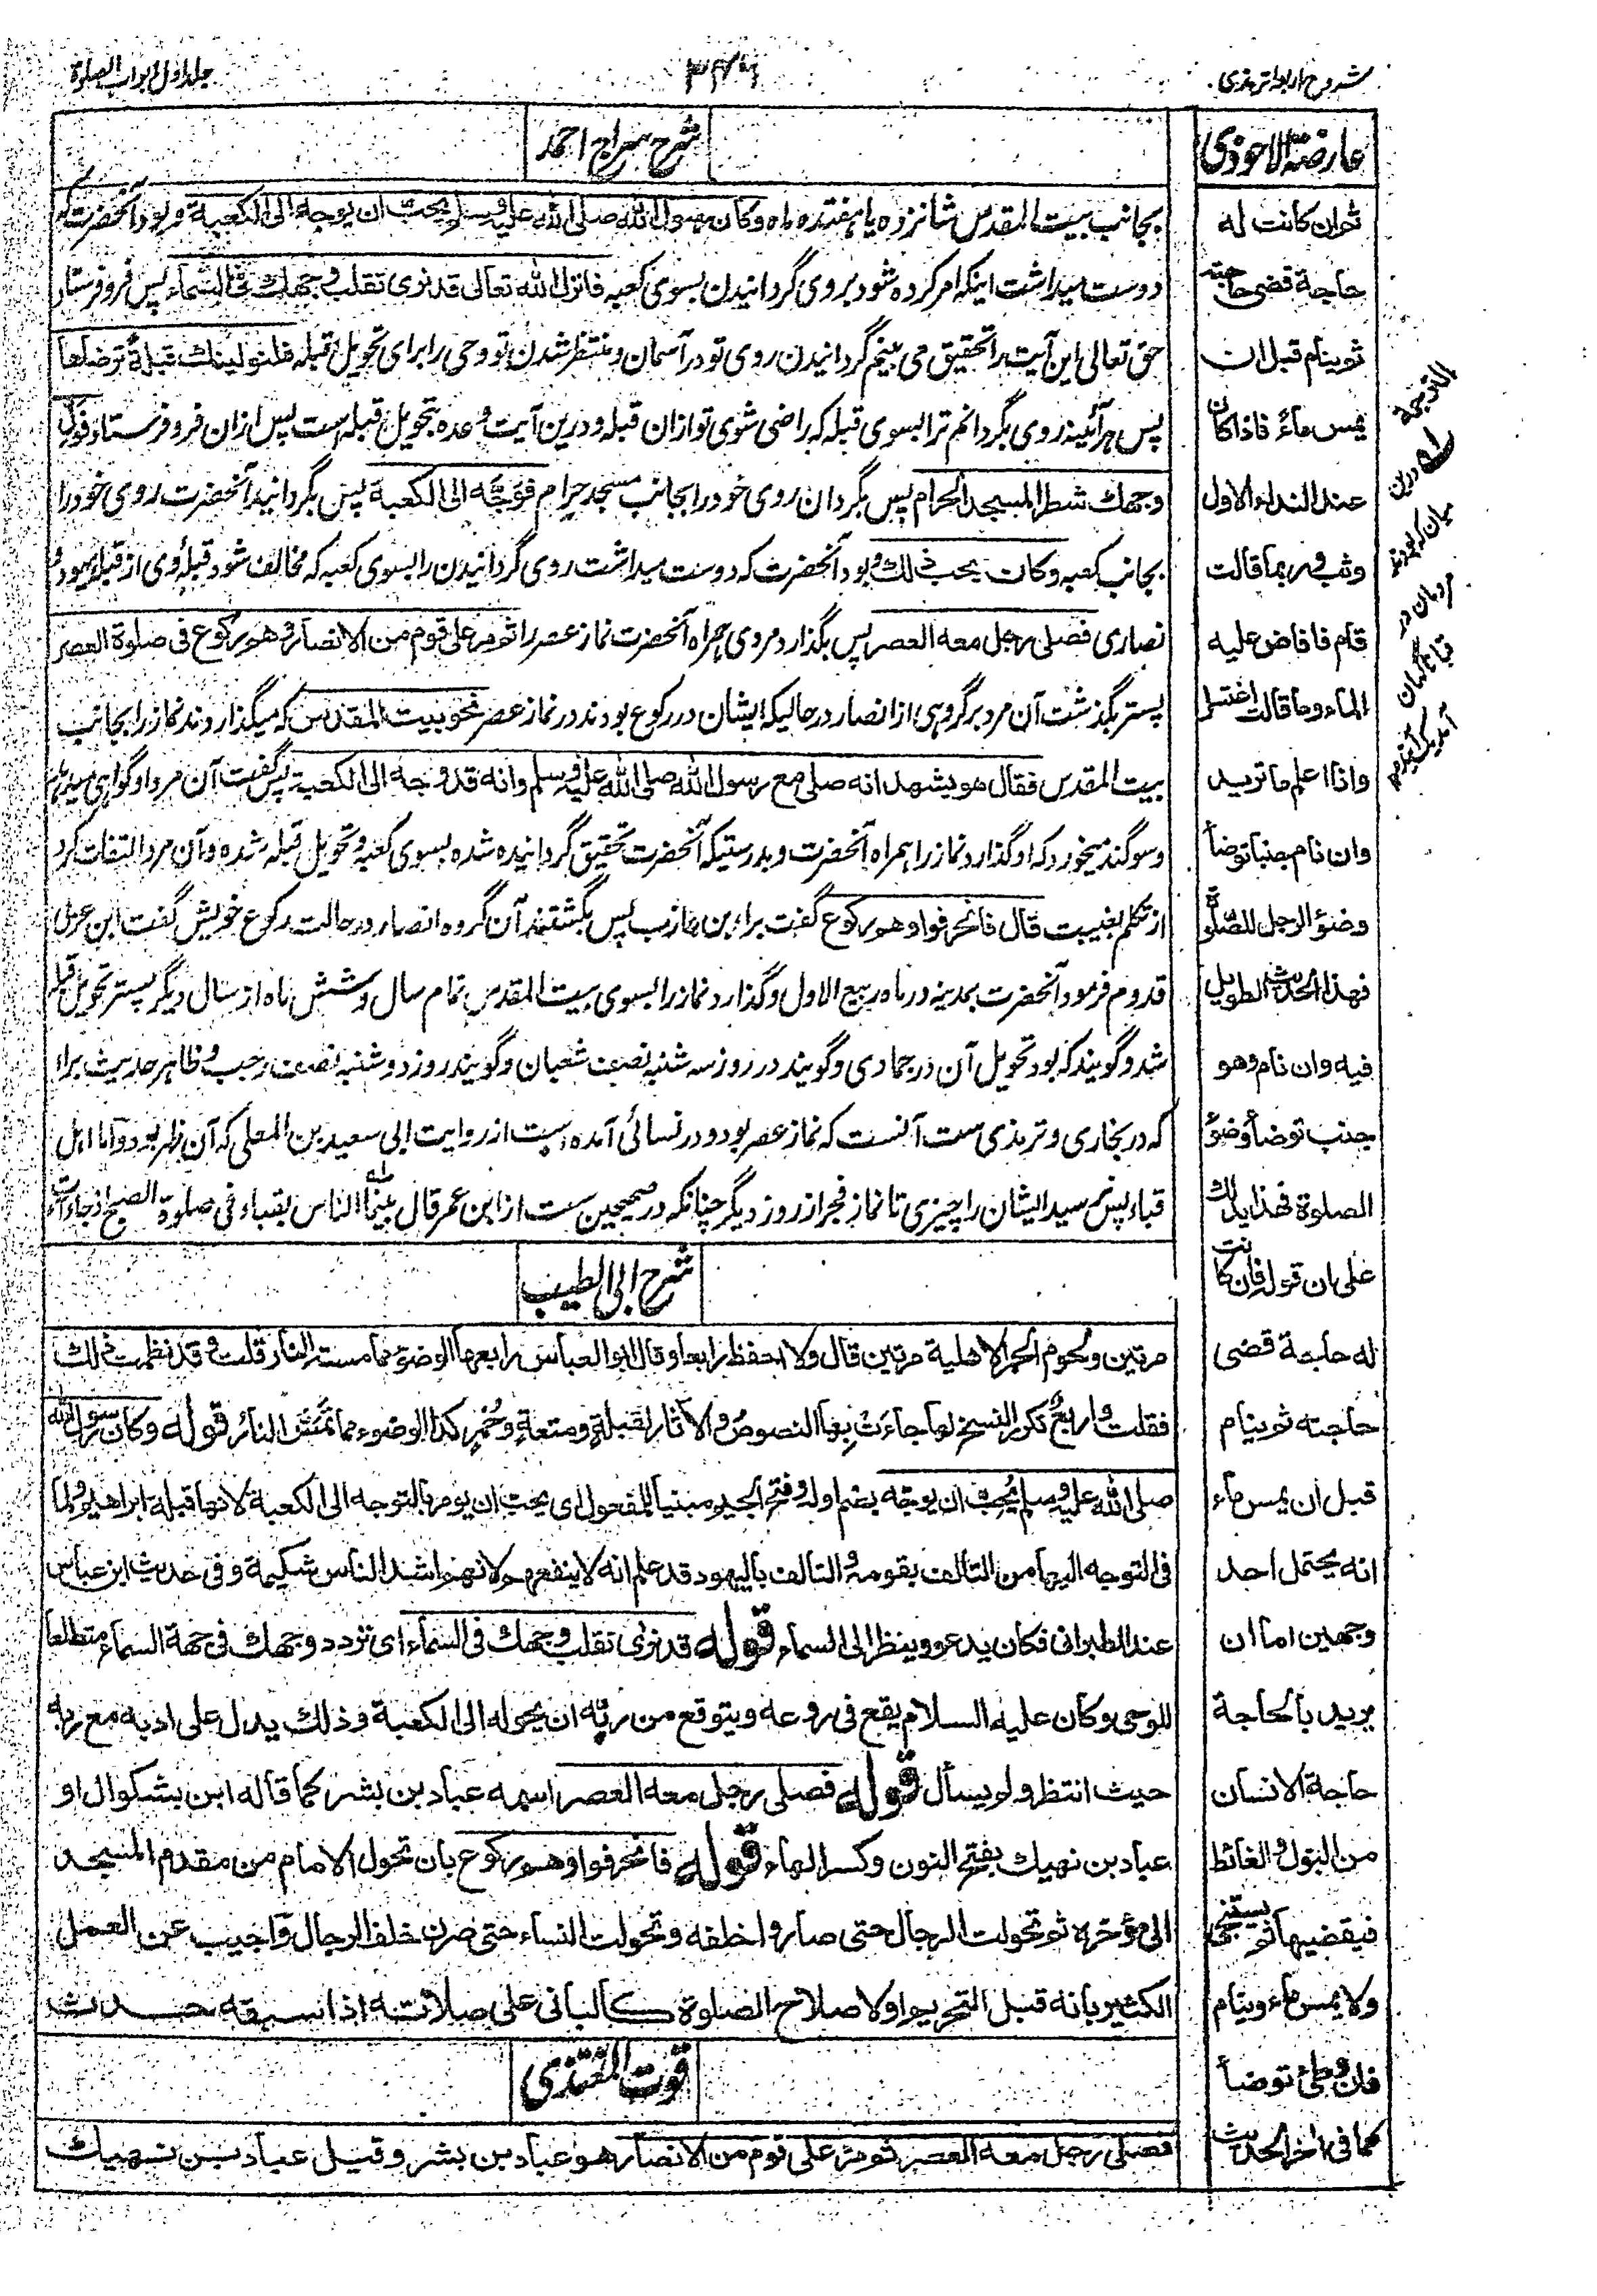 شروح اربعہ ترمذی
۳۴۶
جلد اول ابواب الصلوة
عارضة الاحوذی
ثم ان كانت له
حاجة قضى حاجته
ثم ينام قبل ان
يمس ماء فاذا كان
عند النداء الاول
وثب وربما قالت
قام فافاض عليه
الماء وما قالت اغتسل
وانا اعلم ما تريد
وان نام جنبا توضأ
وضوء الرجل للصلوة
فهذا الحديث الطويل
فيه وان نام وهو
جنب توضأ وضوء
الصلوة فهذا يدلك
على ان قوله فان كانت
له حاجة قضى
حاجته ثم ينام
قبل ان يمس ماء
انه يحتمل احد
وجهين اما ان
يريد بالحاجة
حاجة الانسان
من البول والغائط
فيقضيها ثم يستنجى
ولا يمس ماء وينام
فان وطئ توضأ
كما فى اخر الحديث
شرح سراج احمد
بجانب بیت المقدس شانزده یا هفتده ماه وكان رسول الله صلى الله عليه وسلم يحب ان يوجه الى الكعبة و بود آنحضرت که
دوست میداشت اینکه امر کرده شود بروی گردانیدن بسوی کعبه فانزل الله تعالى قد نرى تقلب وجهك فى السماء پس فرو فرستاد
حق تعالی این آیت را تحقیق می بینم گردانیدن روی تو در آسمان و منتظر شدن تو وحی را برای تحویل قبله فلنولينك قبلة ترضٰها
پس هر آئینه روی بگردانم ترا بسوی قبله که راضی شوی تو ازان قبله و درین آیت وعده بتحویل قبله است پس ازان فرو فرستاد فول
وجهك شطر المسجد الحرام پس بگردان روی خود را بجانب مسجد حرام فوجه الى الكعبة پس بگردانید آنحضرت روی خود را
بجانب کعبه وكان يحب ذلك و بود آنحضرت که دوست میداشت روی گردانیدن را بسوی کعبه که مخالف شود قبلهٔ وی از قبله یهود و
نصاری فصلى رجل معه العصر پس بگذارد مردی همراه آنحضرت نماز عصر را ثم مر على قوم من الانصار وهم ركوع فى صلوة العصر
پستر بگذشت آن مرد بر گروهی از انصار در حالیکه ایشان در رکوع بودند در نماز عصر نحو بيت المقدس که میگذاردند نماز را بجانب
بیت المقدس فقال هو يشهد انه صلى مع رسول الله صلى الله عليه وسلم وانه قد وجه الى الكعبة پس گفت آن مرد او گواهی میدهد
وسوگند میخورد که او گذارد نماز را همراه آنحضرت و بدرستیکه آنحضرت تحقیق گردانیده شده بسوی کعبه و تحویل قبله شده و آن مرد التفات کرد
از تکلم بغیبت قال فانحرفوا وهم ركوع گفت براء بن عازب پس بگشتند آن گروه انصار در حالت رکوع خویش گفت ابن عربی
قدوم فرمود آنحضرت بمدینه در ماه ربیع الاول و گذارد نماز را بسوی بیت المقدس تمام سال و شش ماه از سال دیگر پستر تحویل قبله
شد و گویند که بود تحویل آن در جمادی و گویند در روز سه شنبه نصف شعبان و گویند روز دوشنبه نصف رجب و ظاهر حدیث براء
که در بخاری و ترمذی ست آنست که نماز عصر بود و در نسائی آمده است از روایت ابی سعید بن المعلی که آن ظهر بود و اما اهل
قباء پس نرسید ایشان را چیزی تا نماز فجر از روز دیگر چنانکه در صحیحین ست از ابن عمر قال بينما الناس بقباء فى صلوة الصبح اذ جاءهم آت
شرح ابی الطیب
مرتين ولحوم الحمر الاهلية مرتين قال ولا احفظ رابعا وقال ابو العباس رابعها الوضوء مما مسته النار قلت وقد نظمت ذلك
فقلت واربع تكرر النسخ لها جاءت بها النصوص والآثار لقبلة ومتعة وخمر كذا الوضوء مما تمس النار قوله وكان رسول الله
صلى الله عليه وسلم يحب ان يوجه بضم اوله وفتح الجيم مبنيا للمفعول اى يحب ان يؤمر بالتوجه الى الكعبة لانها قبلة ابراهيم ولما
فى التوجه اليها من التالف بقومه والتالف باليهود قد علم انه لا ينفعهم لانهم اشد الناس شكيمة وفى حديث ابن عباس
عند الطبرانى فكان يدعو وينظر الى السماء قوله قد نرى تقلب وجهك فى السماء اى تردد وجهك فى جهة السماء متطلعا
للوحى وكان عليه السلام يقع فى روعه ويتوقع من ربه ان يحوله الى الكعبة وذلك يدل على ادبه مع ربه
حيث انتظر ولم يسأل قوله فصلى رجل معه العصر اسمه عباد بن بشر كما قاله ابن بشكوال او
عباد بن نهيك بفتح النون وكسر الهاء قوله فانحرفوا وهم ركوع بان تحول الامام من مقدم المسجد
الى مؤخره ثم تحولت الرجال حتى صاروا خلفه وتحولت النساء حتى صرن خلف الرجال واجيب عن العمل
الكثير بانه قبل التحريم او لاصلاح الصلوة كالبانى على صلاته اذا سبقه حدث
قوت المغتذی
فصلى رجل معه العصر ثم مر على قوم من الانصار هو عباد بن بشر وقيل عباد بن نهيك
الترجمة
له درین
میان که بودند
مردمان در
قبا ناگهان
آمد یک آینده